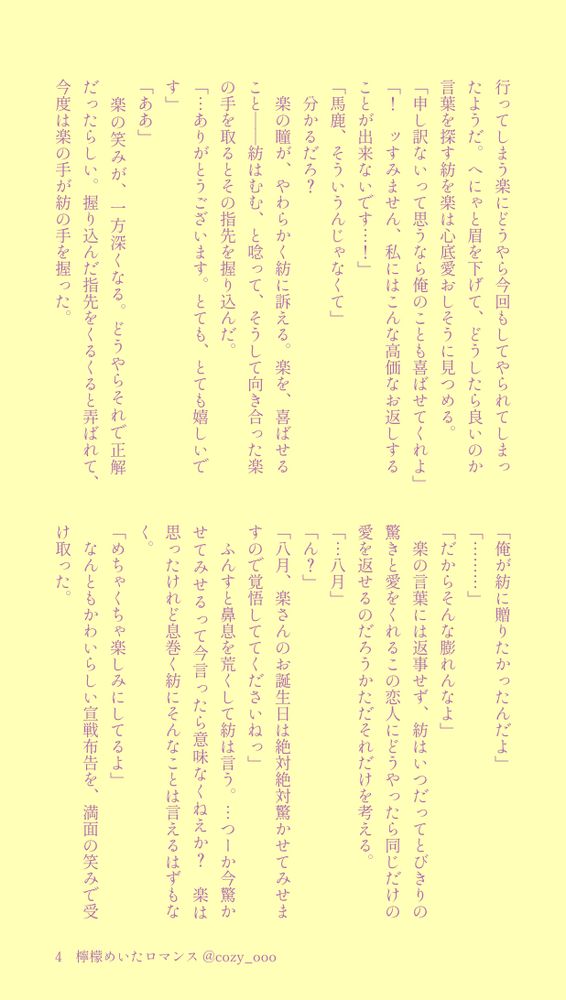 行ってしまう楽にどうやら今回もしてやられてしまっ
たようだ。へにゃと眉を下げて、どうしたら良いのか
言葉を探す紡を楽は心底愛おしそうに見つめる。
「申し訳ないって思うなら俺のことも喜ばせてくれよ」
「！　ッすみません、私にはこんな高価なお返しする
ことが出来ないです…！」
「馬鹿、そういうんじゃなくて」
　分かるだろ？
　楽の瞳が、やわらかく紡に訴える。楽を、喜ばせる
こと――紡はむむ、と唸って、そうして向き合った楽
の手を取るとその指先を握り込んだ。
「…ありがとうございます。とても、とても嬉しいで
す」
「ああ」
　楽の笑みが、一方深くなる。どうやらそれで正解
だったらしい。握り込んだ指先をくるくると弄ばれて、
今度は楽の手が紡の手を握った。
「俺が紡に贈りたかったんだよ」
「………」
「だからそんな膨れんなよ」
　楽の言葉には返事せず、紡はいつだってとびきりの
驚きと愛をくれるこの恋人にどうやったら同じだけの
愛を返せるのだろうかただそれだけを考える。
「…八月」
「ん？」
「八月、楽さんのお誕生日は絶対絶対驚かせてみせま
すので覚悟しててくださいねっ」
　ふんすと鼻息を荒くして紡は言う。…つーか今驚か
せてみせるって今言ったら意味なくねえか？　楽は
思ったけれど息巻く紡にそんなことは言えるはずもな
く。
「めちゃくちゃ楽しみにしてるよ」
　なんともかわいらしい宣戦布告を、満面の笑みで受
け取った。
4　檸檬めいたロマンス @cozy_ooo